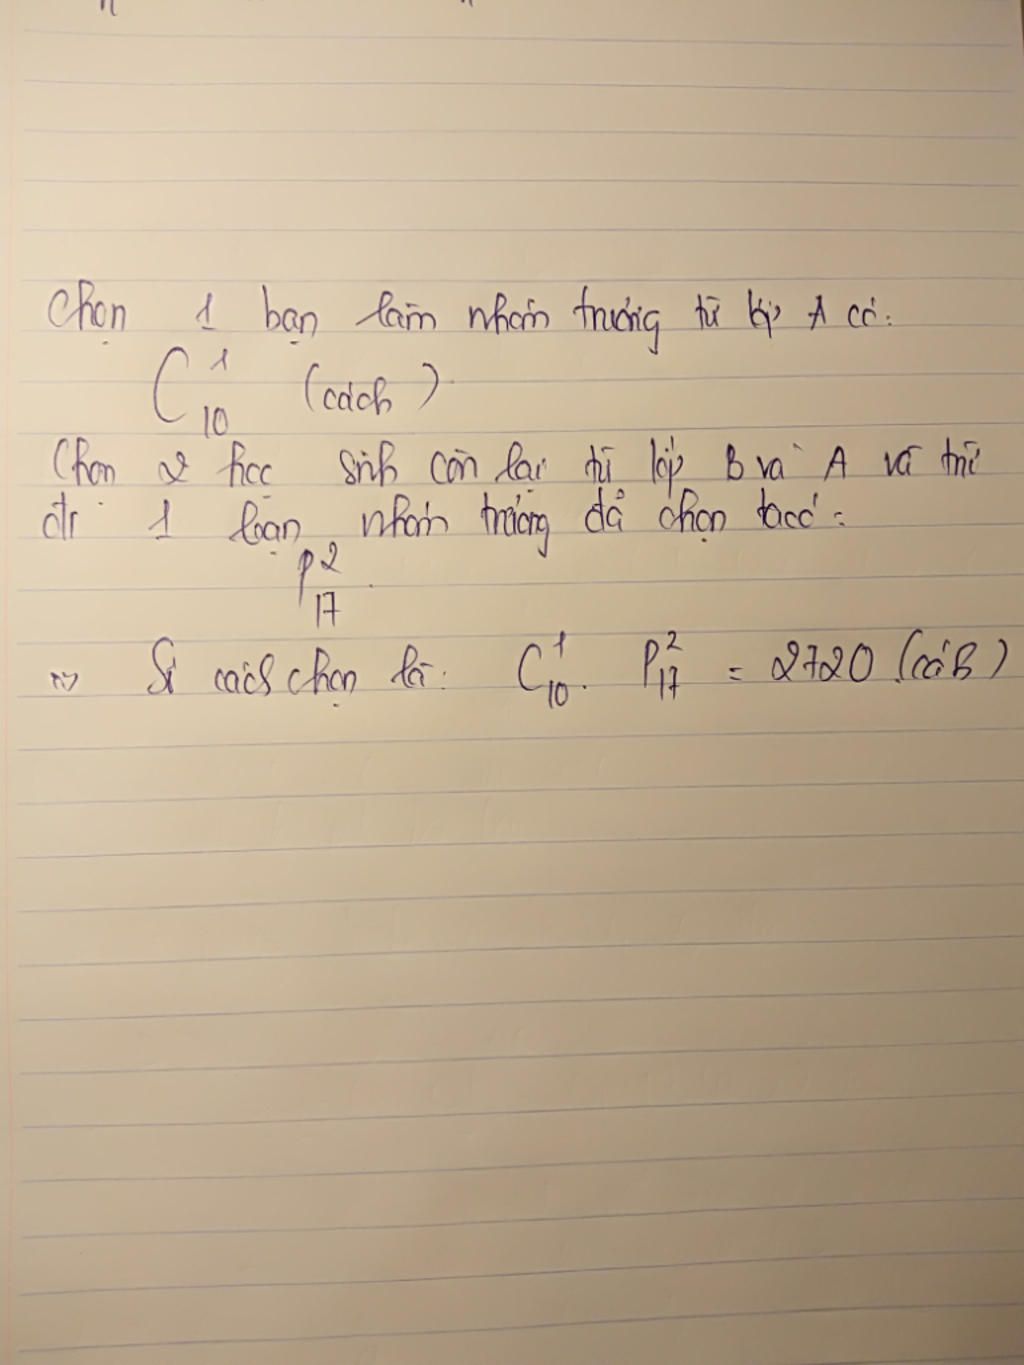 Chọn 1 bạn làm nhóm trưởng từ lớp A có:
C¹₁₀ (cách)
Chọn 2 học sinh còn lại từ lớp B và A và trừ
đi 1 bạn nhóm trưởng đã chọn ta có:
P²₁₇
=> Số cách chọn là: C¹₁₀ . P²₁₇ = 2720 (cách)